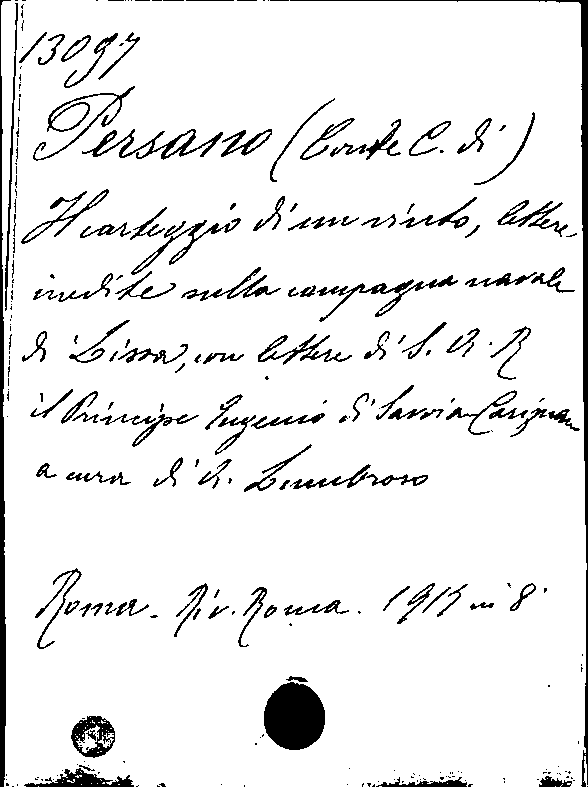 13097
Persano (Conte C. di)
Il carteggio di un vinto, lettere
inedite sulla campagna navale
di Lissa, con lettere di S. A. R
il Principe Eugenio di Savoia-Carignano
a cura di A. Lumbroso
Roma - Riv. Roma. 1917 in 8°